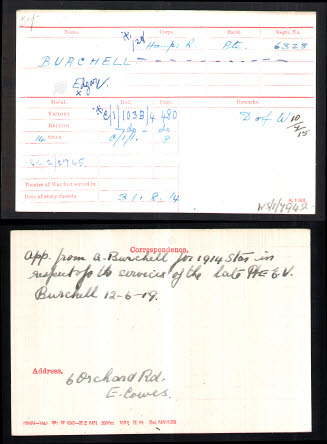 Name. Corps. Rank. Regtl. No.
* 1/ Hamps R. Pte. 6328
BURCHELL
Edgar V.
x
Medal. Roll. Page. Remarks.
VICTORY * C/1/103B/4 480 D of W 10/2/15
BRITISH - do - do
14 STAR C/1/1. 8
Theatre of War first served in
Date of entry therein 31.8.14
Correspondence.
App. from A. Burchell for 1914 Star in
respect of the services of the late Pte E.V.
Burchell 12-6-19.
Address.
6 Orchard Rd.
E. Cowes.